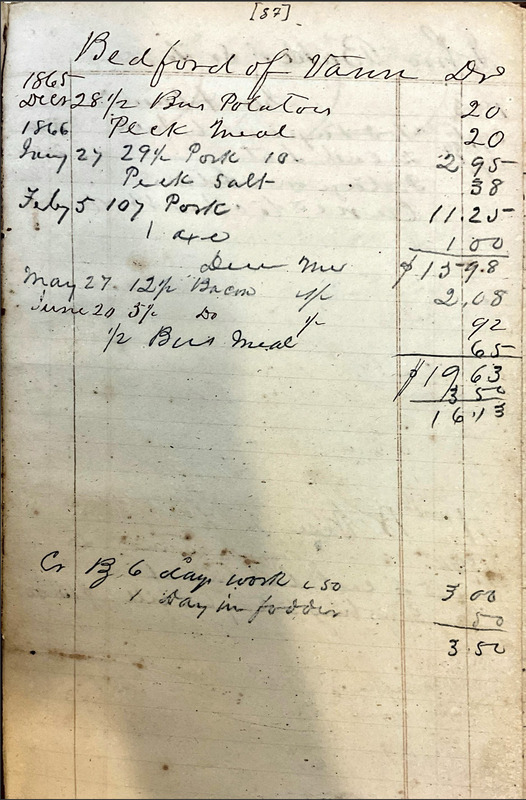 [37]
Bedford of Vann Dr
1865
Decr 28 1/2 Bus Potatoes 20
1866 Peck Meal 20
Jany 27 29 1/2 Pork 10 2 95
Peck Salt 38
Feby 5 107 Pork 11.25
1 axe 1 00
Due Me $15 98
May 27 12 1/2 Bacon 2,08
June 20 5 1/2 Do 92
1/2 Bus Meal 65
$19 63
3 50
16.13
Cr By 6 days work c50 3 00
1 Day in fodder 50
3 50